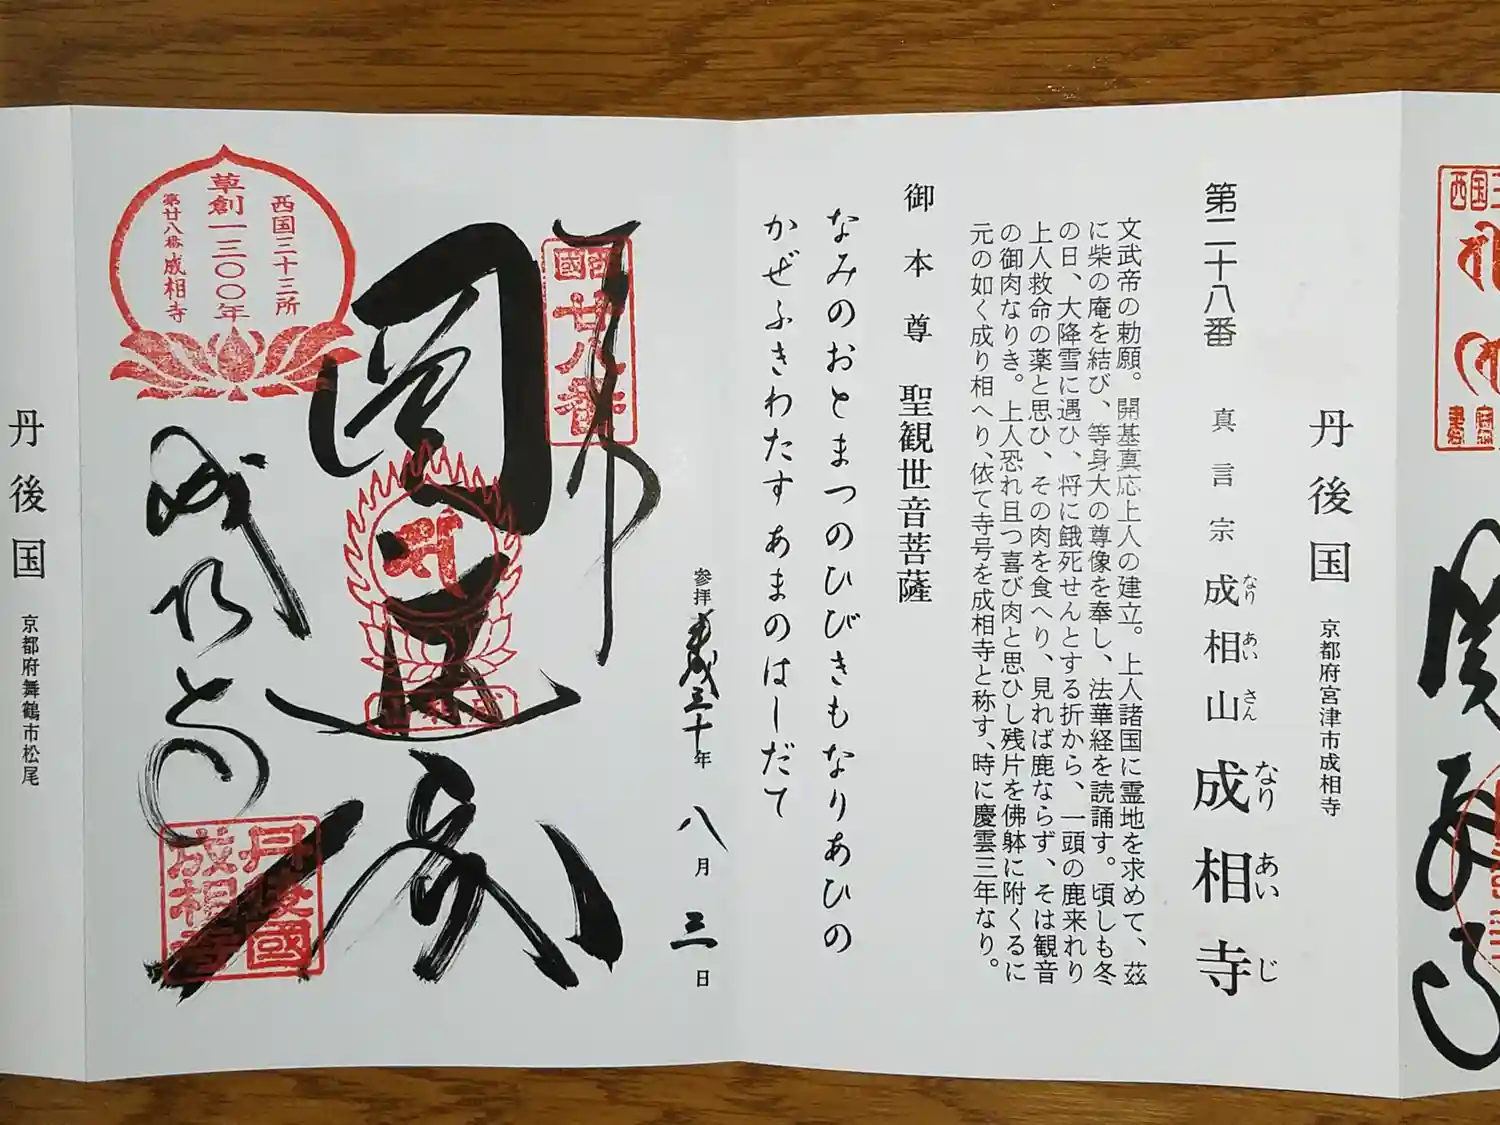 丹後国
京都府宮津市成相寺
第二十八番
真言宗 成相山 成相寺
なり あい さん なり あい じ
文武帝の勅願。開基真応上人の建立。上人諸国に霊地を求めて、茲
に柴の庵を結び、等身大の尊像を奉し、法華経を読誦す。頃しも冬
の日、大降雪に遇ひ、将に餓死せんとする折から、一頭の鹿来れり
上人救命の薬と思ひ、その肉を食へり、見れば鹿ならず、そは観音
の御肉なりき。上人恐れ且つ喜び肉と思ひし残片を佛躰に附くるに
元の如く成り相へり、依て寺号を成相寺と称す、時に慶雲三年なり。
御本尊 聖観世音菩薩
なみのおとまつのひびきもなりあひの
かぜふきわたすあまのはしだて
参拝 平成三十年 八月 三日
奉拝
西國
廿八番
成相寺
西国三十三所
草創一三〇〇年
第廿八番 成相寺
成相寺
丹後國
成相寺
丹後国
京都府舞鶴市松尾